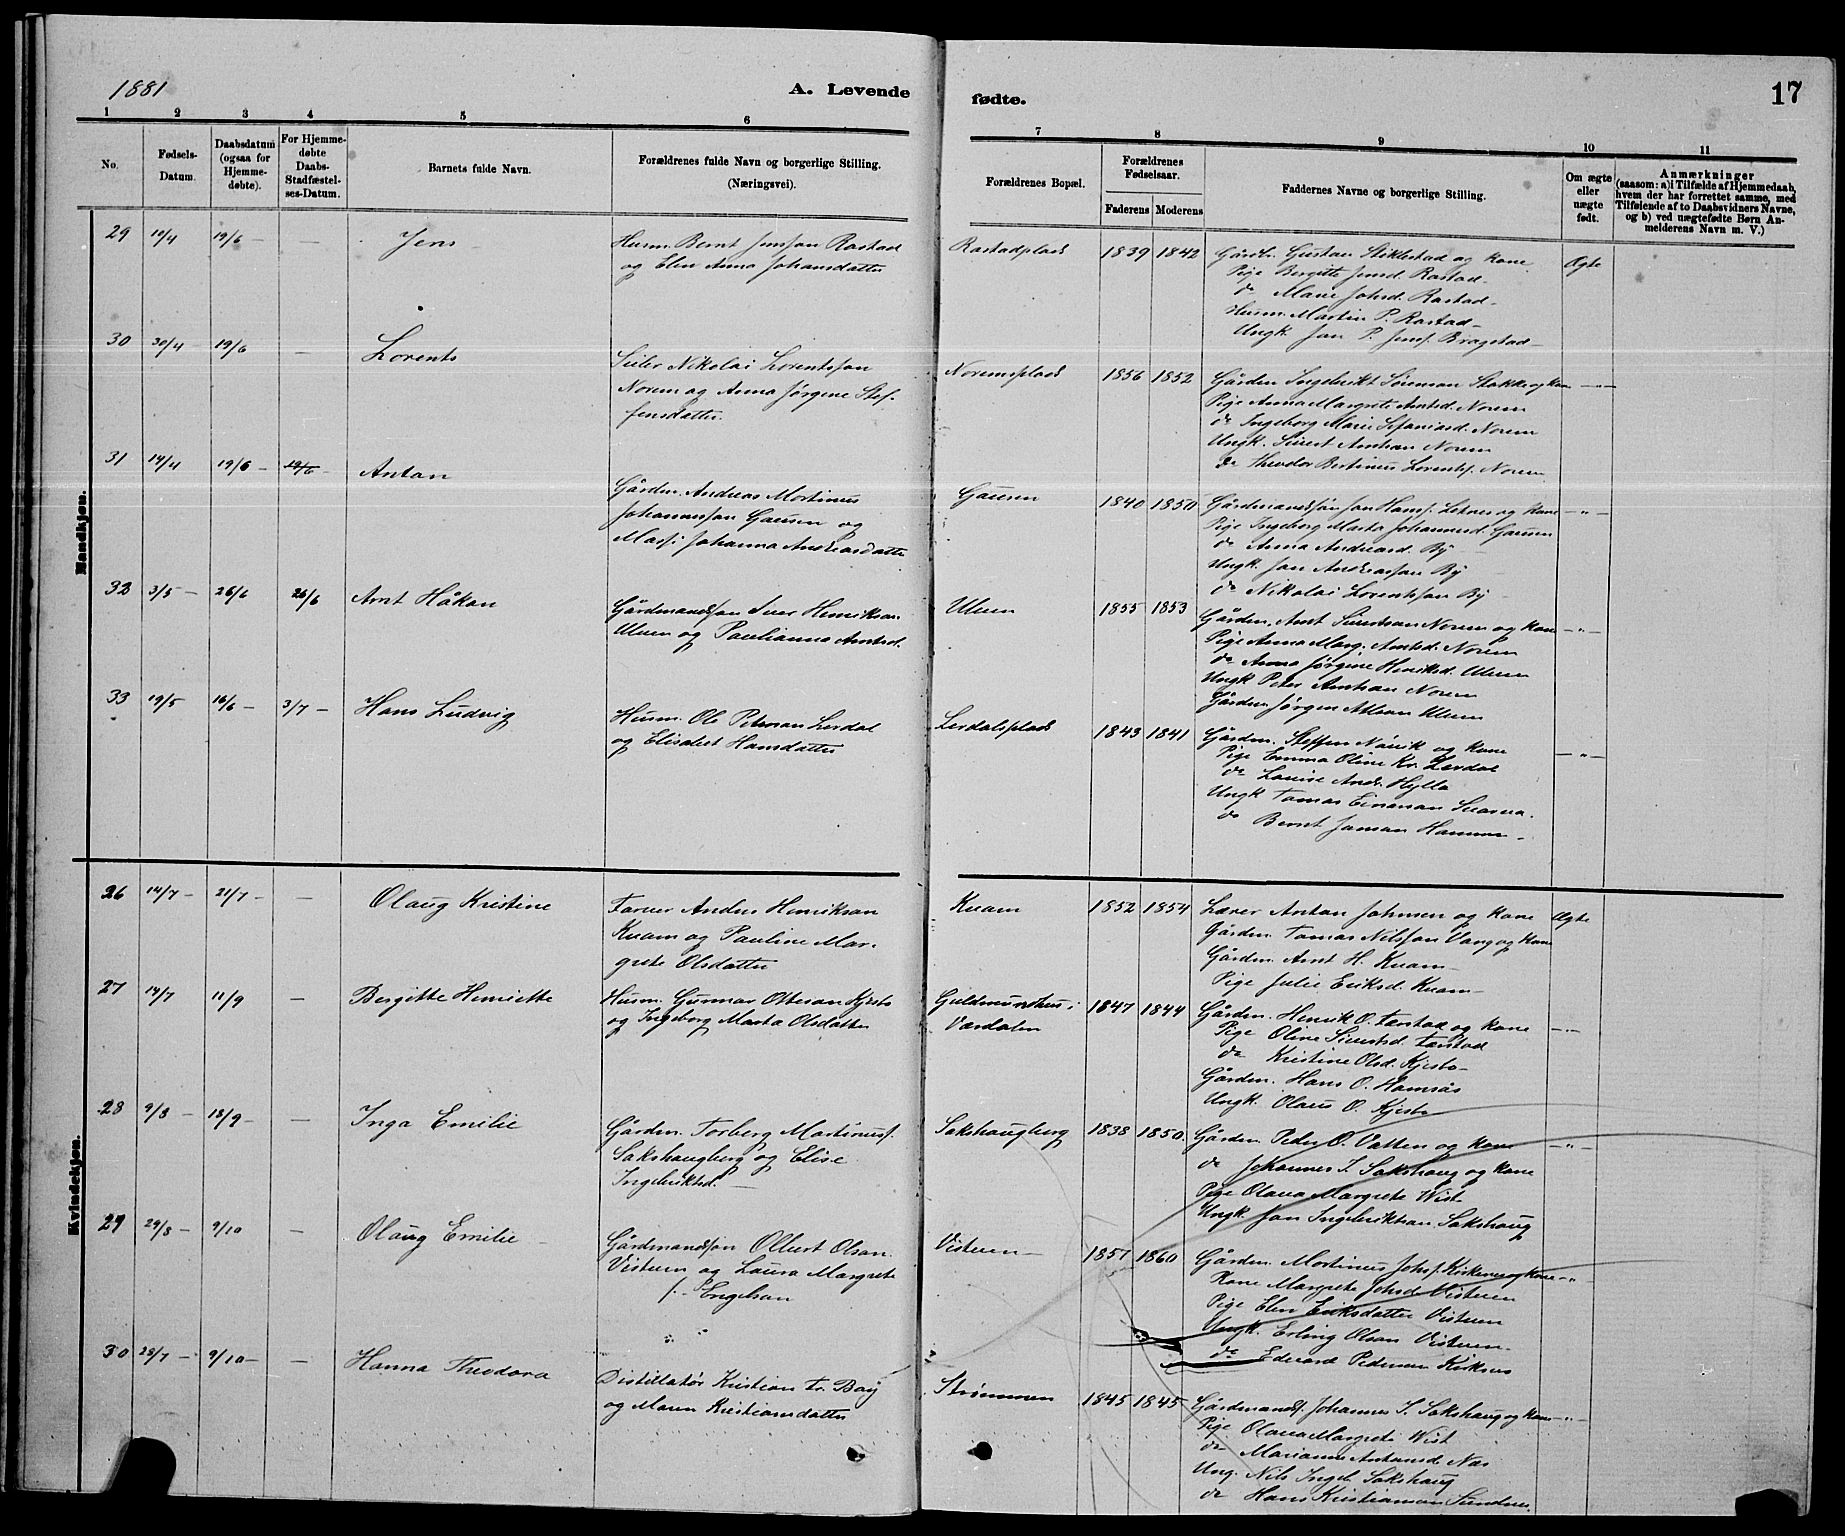 1881
A. Levende
fødte.
17
1 2 3 4 5 6
7 8 9 10 11
No.
Fødsels-Datum.
Daabsdatum (ogsaa for Hjemme-døbte).
For Hjemme-døbte Daabs-Stadfæstel-ses-Datum.
Barnets fulde Navn.
Forældrenes fulde Navn og borgerlige Stilling.
(Næringsvei).
Forældrenes Bopæl.
Forældrenes Fødselsaar.
Faderens Moderens
Faddernes Navne og borgerlige Stilling.
Om ægte eller uægte født.
Anmærkninger
(saasom: a) i Tilfælde af Hjemmedaab,
hvem der har forrettet samme, med
Tilføiende af to Daabsvidners Navne,
og b) ved uægtefødte Børn An-
melderens Navn m. V.)
Mandkjøn.
29 10/4 19/6 — — Jens
Husm. Bernt Jensson Rostad
og Elen Anna Johansdatter
Rostadplads 1839 1842
Gårdbr. Gustav Stiklestad og Kone Ægte
Pige Bergitte Jensd. Rostad
do Marie Johsd. Rostad
Husm. Martin P. Rostad
Ungk. Jon P. Jens. Bragstad
30 30/4 19/6 — Lorents
Nikolai Lorentsson
Norem og Anna Jørgine Stef-
fensdatter
Noremsplads 1856 1852
Gårdm. Ingebrikt Sørensen Stokke og Kone — " —
Pige Anna Margrete Arntsd. Norem
do Ingeborg Marie Norem
Ungk. Sivert Arntsen Norem
do Theodor Bertinus Lorents. Norem
31 14/4 19/6 — 19/6 — Anton
Gårdm. Andreas Mortinus
Johannsson Gausen og
Johanna Andreasdatter
Gausen 1840 1850
Gårdmandssøn Jon Hans. og Kone — " —
Pige Ingeborg Marta Johannesd. Gausen
do Anna Andreasd. By
Ungk. Jon Andreasson By
do Nikolai Lorentsson By
32 3/5 — 26/6 26/6 Arnt Håkon
Gårdmandsson Iver Henriksen
Ulven og Paulianna Arntsd.
Ulven 1855 1853
Gårdm. Arnt Sivertsen Norem og Kone — " —
Pige Anna Marg. Arntsd. Norem
do Anna Jørgine Henriksd. Ulven
Ungk Peter Arntsen Norem
Gårdm Jørgen Ulven
33 19/5 16/6 — 3/7 — Hans Ludvig
Husm. Ole Petersen Lerdal
og Elisabet Hansdatter
Lerdalsplads 1843 1841
Gårdm. Steffen og Kone
Pige Emma Oline Kr. Lerdal — " —
do Louise Andr. Hylla
Ungk Tomas Einarsen
do Bernt Jensen Hammer
Kvindekjøn.
26 14/7 — 21/7 — — Olaug Kristine
Farver Anders Henriksen
Kvam og Pauline Mar-
grete Olsdatter
Kvam 1852 1854
Lærer Anton Johnsen og Kone Ægte
Gårdm. Tomas Nilsson Vang og Kone
Gårdm. Arnt H. Kvam
Pige Julie Eriksd. Kvam
27 14/7 11/9 — Bergitte Henriette
Husm. Gunnar Ottersen Kjesbo
og Ingeborg Marta Olsdatter
Guldmundshus i
Værdalen
1847 1844
Gårdm. Henrik O. Tanstad og Kone — " —
Pige Oline Sivertsd. Tanstad
do Kristine Olsd. Kjesbo
Gårdm. Hans O. Hamsås
Ungk. Olaus O. Kjesbo
28 9/8 — 18/9 — — Inga Emilie
Gårdm. Torberg Martinus.
Sakshaugberg og Elise
Ingebriktsd. —
Sakshaugberg 1838 1850
Gårdm Peder O. Vatten og Kone — " —
do Johannes I. Sakshaug og Kone
Pige Olava Margrete Wist
Ungk. Jon Ingebriktsen Sakshaug
29 29/8 — 9/10 — Olaug Emilie
Gårdmandsson Olbert Olsen
Visteren og Laura Margrete
f. Engelsen
Visteren 1857 1860
Gårdm. Mortinus Johs. Kirknes og Kone — " —
Kone Margrete Johsd. Visteren
Pige Elen Eriksdatter Visteren
Ungk. Erling Olsen Visteren
do Edevard Pedersen Kirknes
30 28/7 — 9/10 — — Hanna Theodora
Distillatør Kristian Fr. Bay
og Maren Kristiansdatter
Strømmen 1845 1845
Gårdmands. Johannes I. Sakshaug og Kone — " —
Pige Olava Margrete Wist
do Marianne Antonsd. Næs
Ung. Nils Ingebr. Sakshaug
do Hans Kristiansen Sundnes